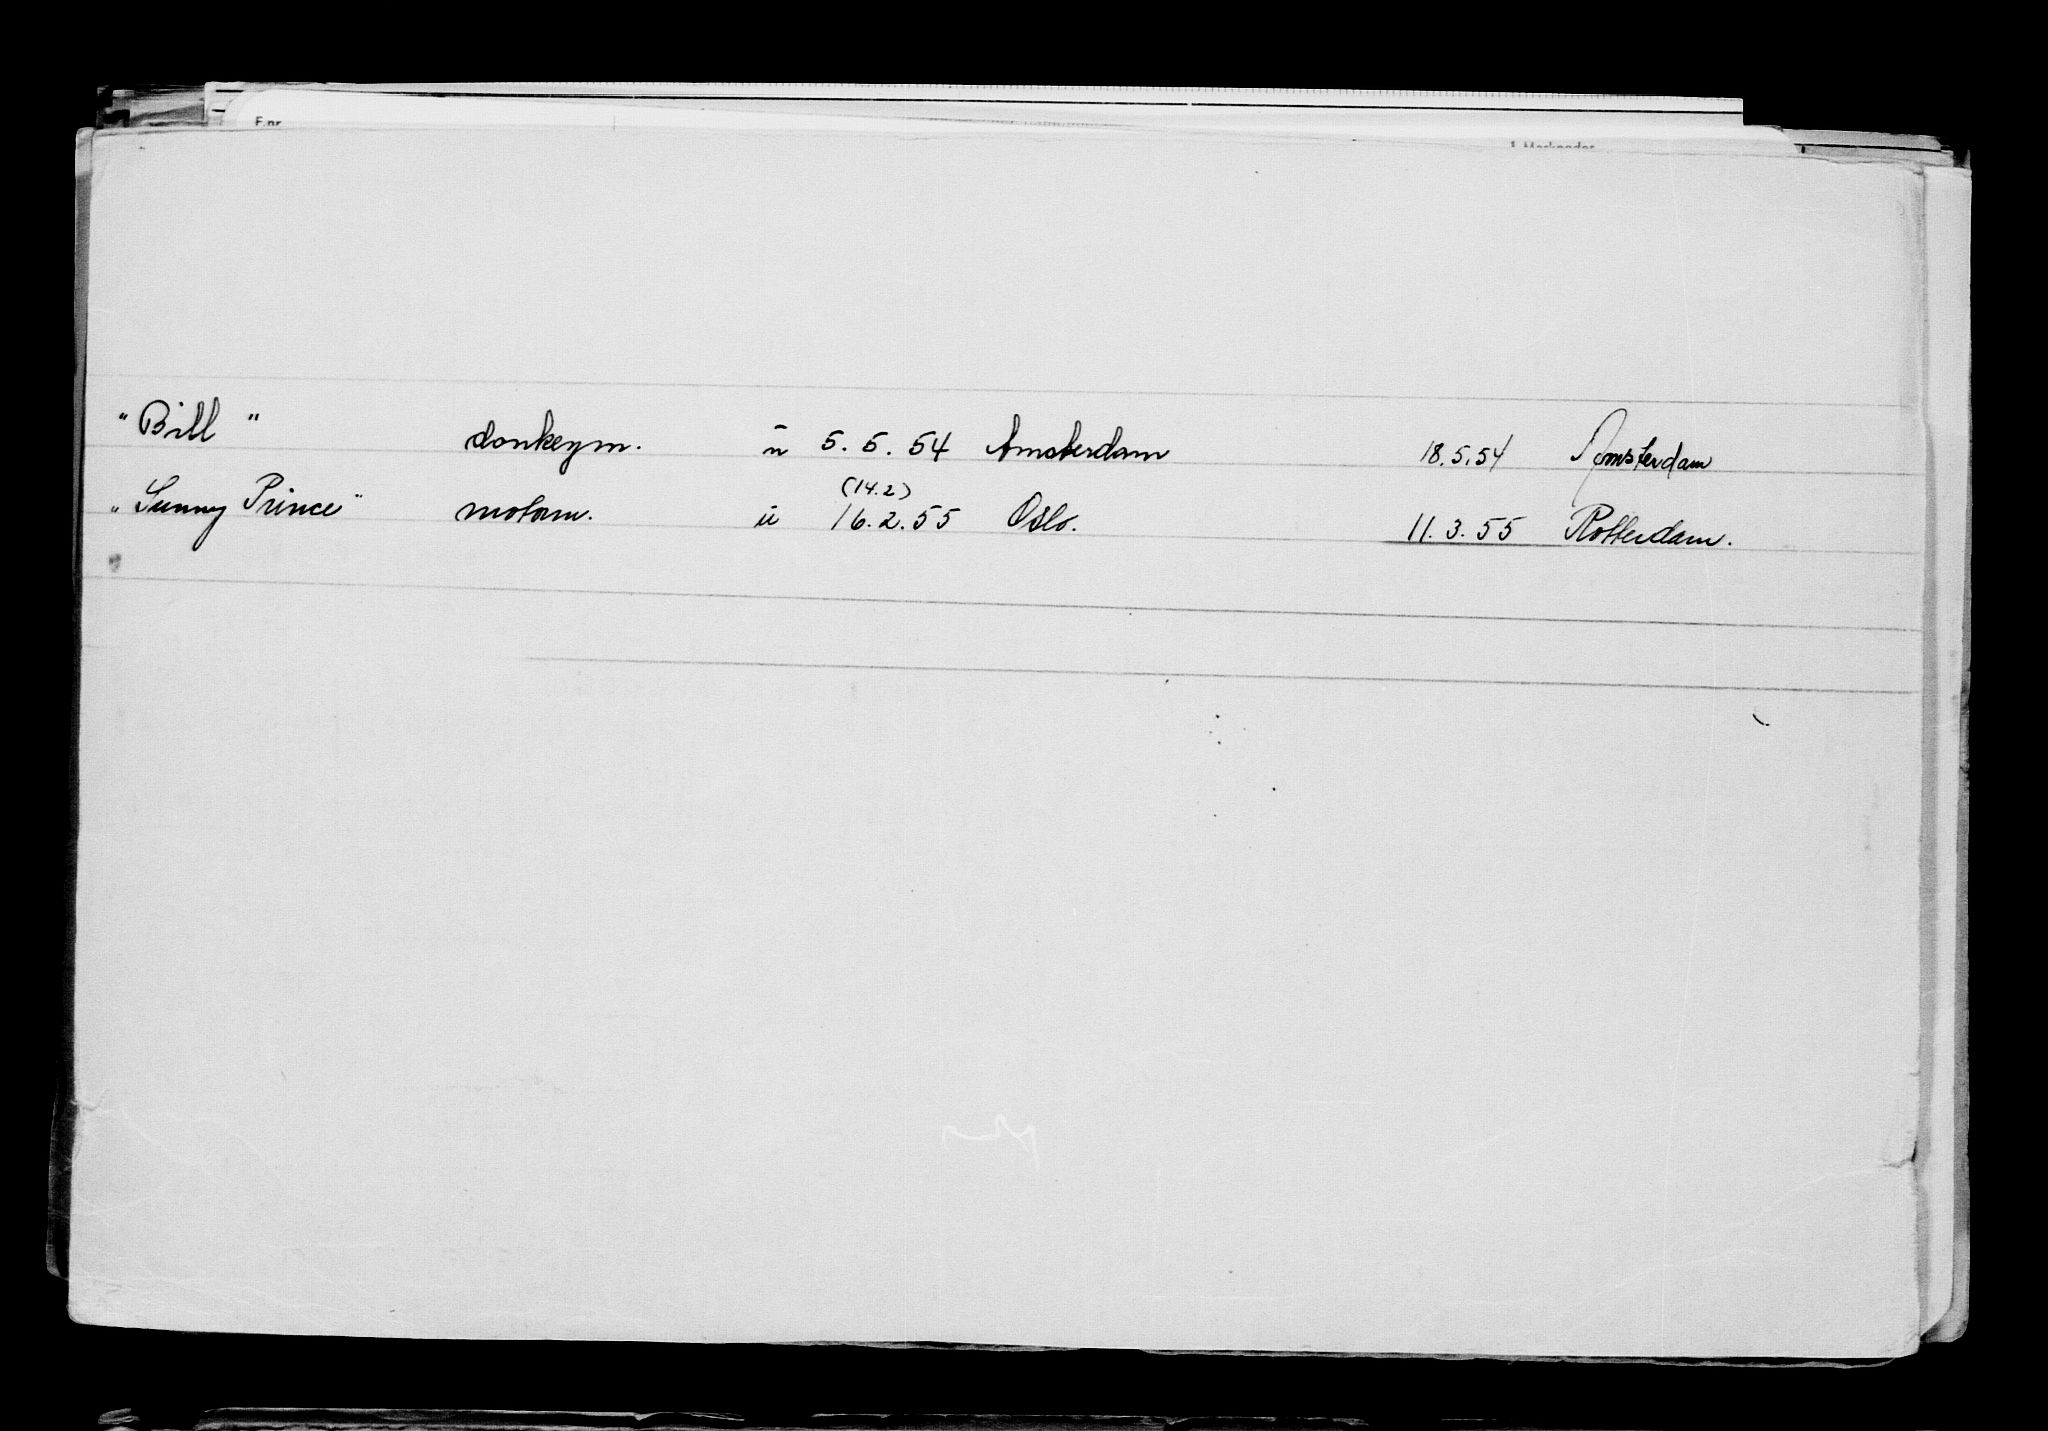 F.nr.
"Bill" donkeym. u 5.5.54 Amsterdam 18.5.54 Amsterdam
(14.2)
"Sunny Prince" motorm. u 16.2.55 Oslo. 11.3.55 Rotterdam.